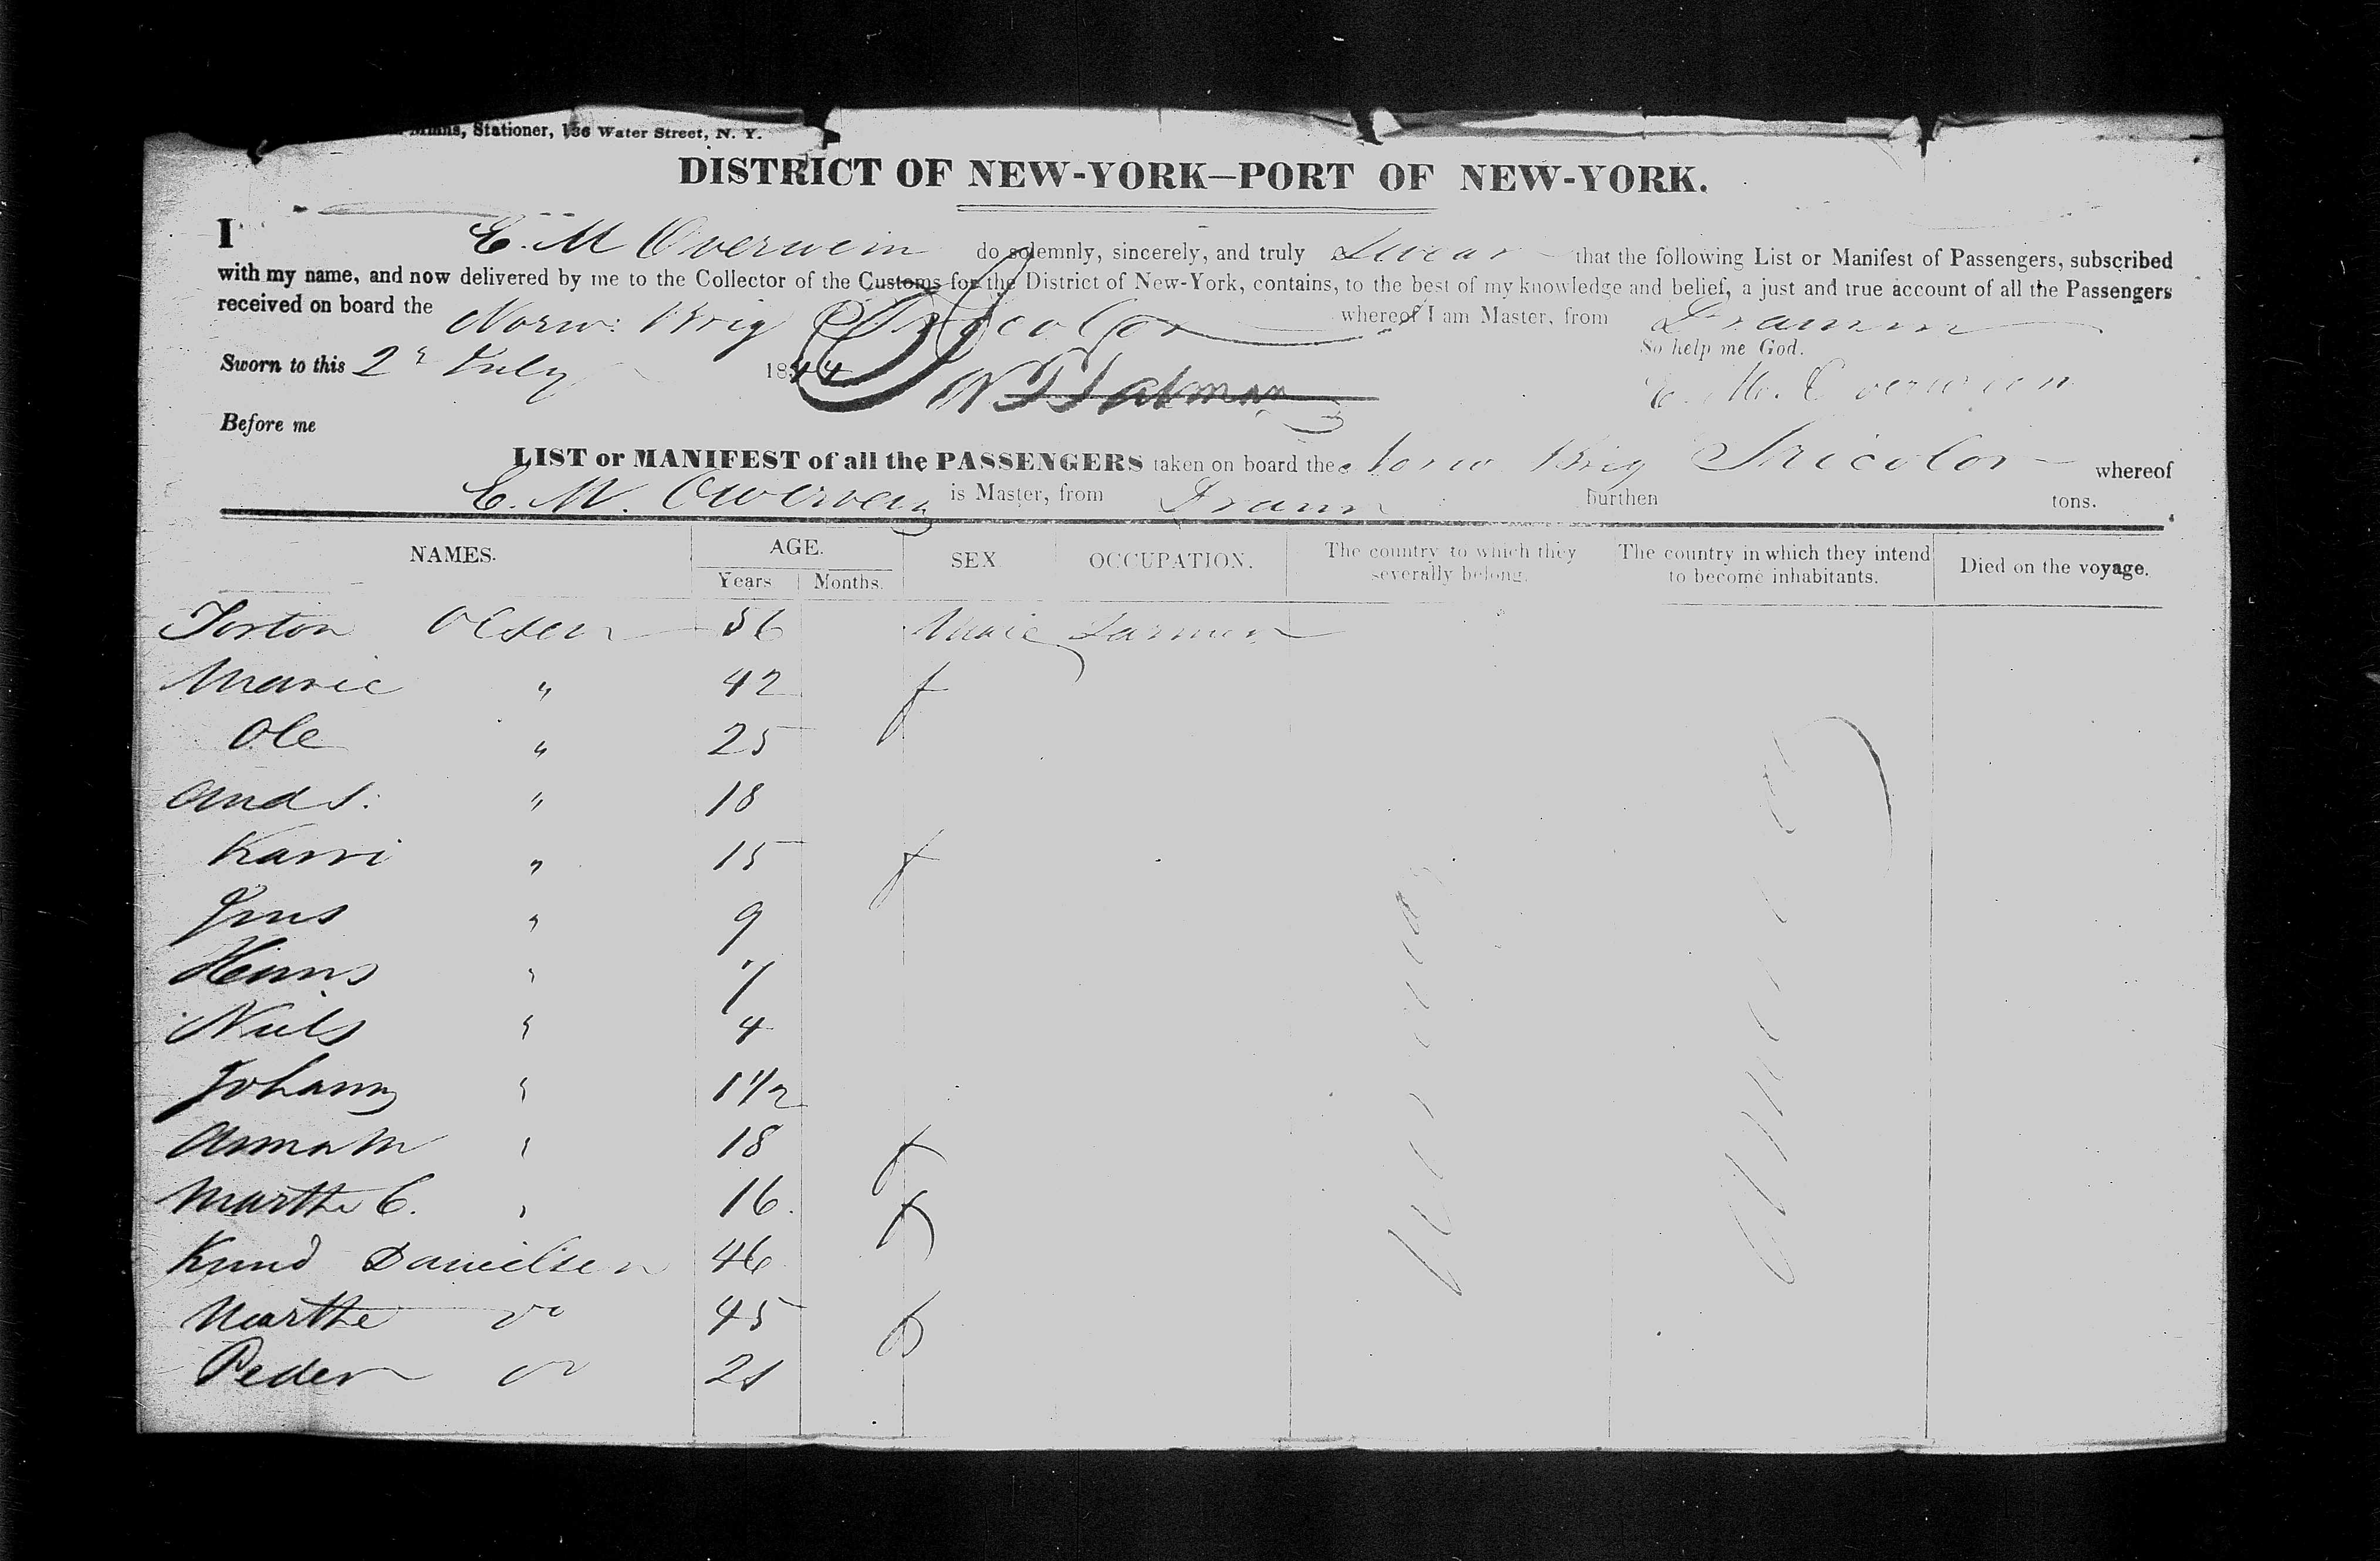 Stationer, 136 Water Street, N. Y.
DISTRICT OF NEW-YORK—PORT OF NEW-YORK.
I C. M Overwein do solemnly, sincerely, and truly Swear that the following List or Manifest of Passengers, subscribed
with my name, and now delivered by me to the Collector of the Customs for the District of New-York, contains, to the best of my knowledge and belief, a just and true account of all the Passengers
received on board the Norw: Brig Tricolor whereof I am Master, from Dramm
So help me God.
Sworn to this 2d July 1844
C. M. Overwein
Before me
LIST or MANIFEST of all the PASSENGERS taken on board the Norw Brig Tricolor whereof
C. M. Owerwein is Master, from Dramm burthen tons.
NAMES. AGE. SEX OCCUPATION. The country to which they severally belong. The country in which they intend to become inhabitants. Died on the voyage.
Years Months.
Torston Olsen 56 Male Farmer
Marie " 42 f
Ole " 25
Ands: " 18
Karri " 15 f
Jens " 9
Hanns " 7
Niels " 4
Johann " 1 1/2
Anna M " 18 f
Marthe C. " 16. f
Knud Danielsen 46
Marthe do 45 f
Peder do 21
Norway
America